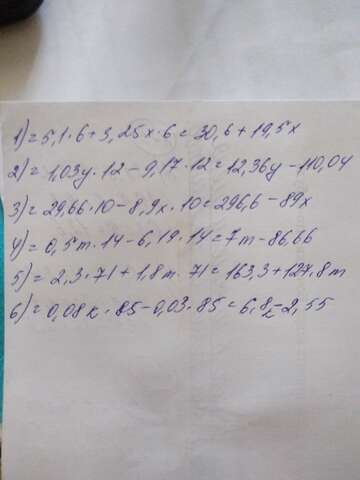 1) = 5,1·6+3,25x·6 = 30,6+19,5x
2) = 1,03y·12-9,17·12=12,36y-110,04
3) = 29,66·10-8,9x·10=296,6-89x
4) = 0,5m·14-6,19·14=7m-86,66
5) = 2,3·71+1,8m·71=163,3+127,8m
6) = 0,08k·85-0,03·85=6,8k-2,55